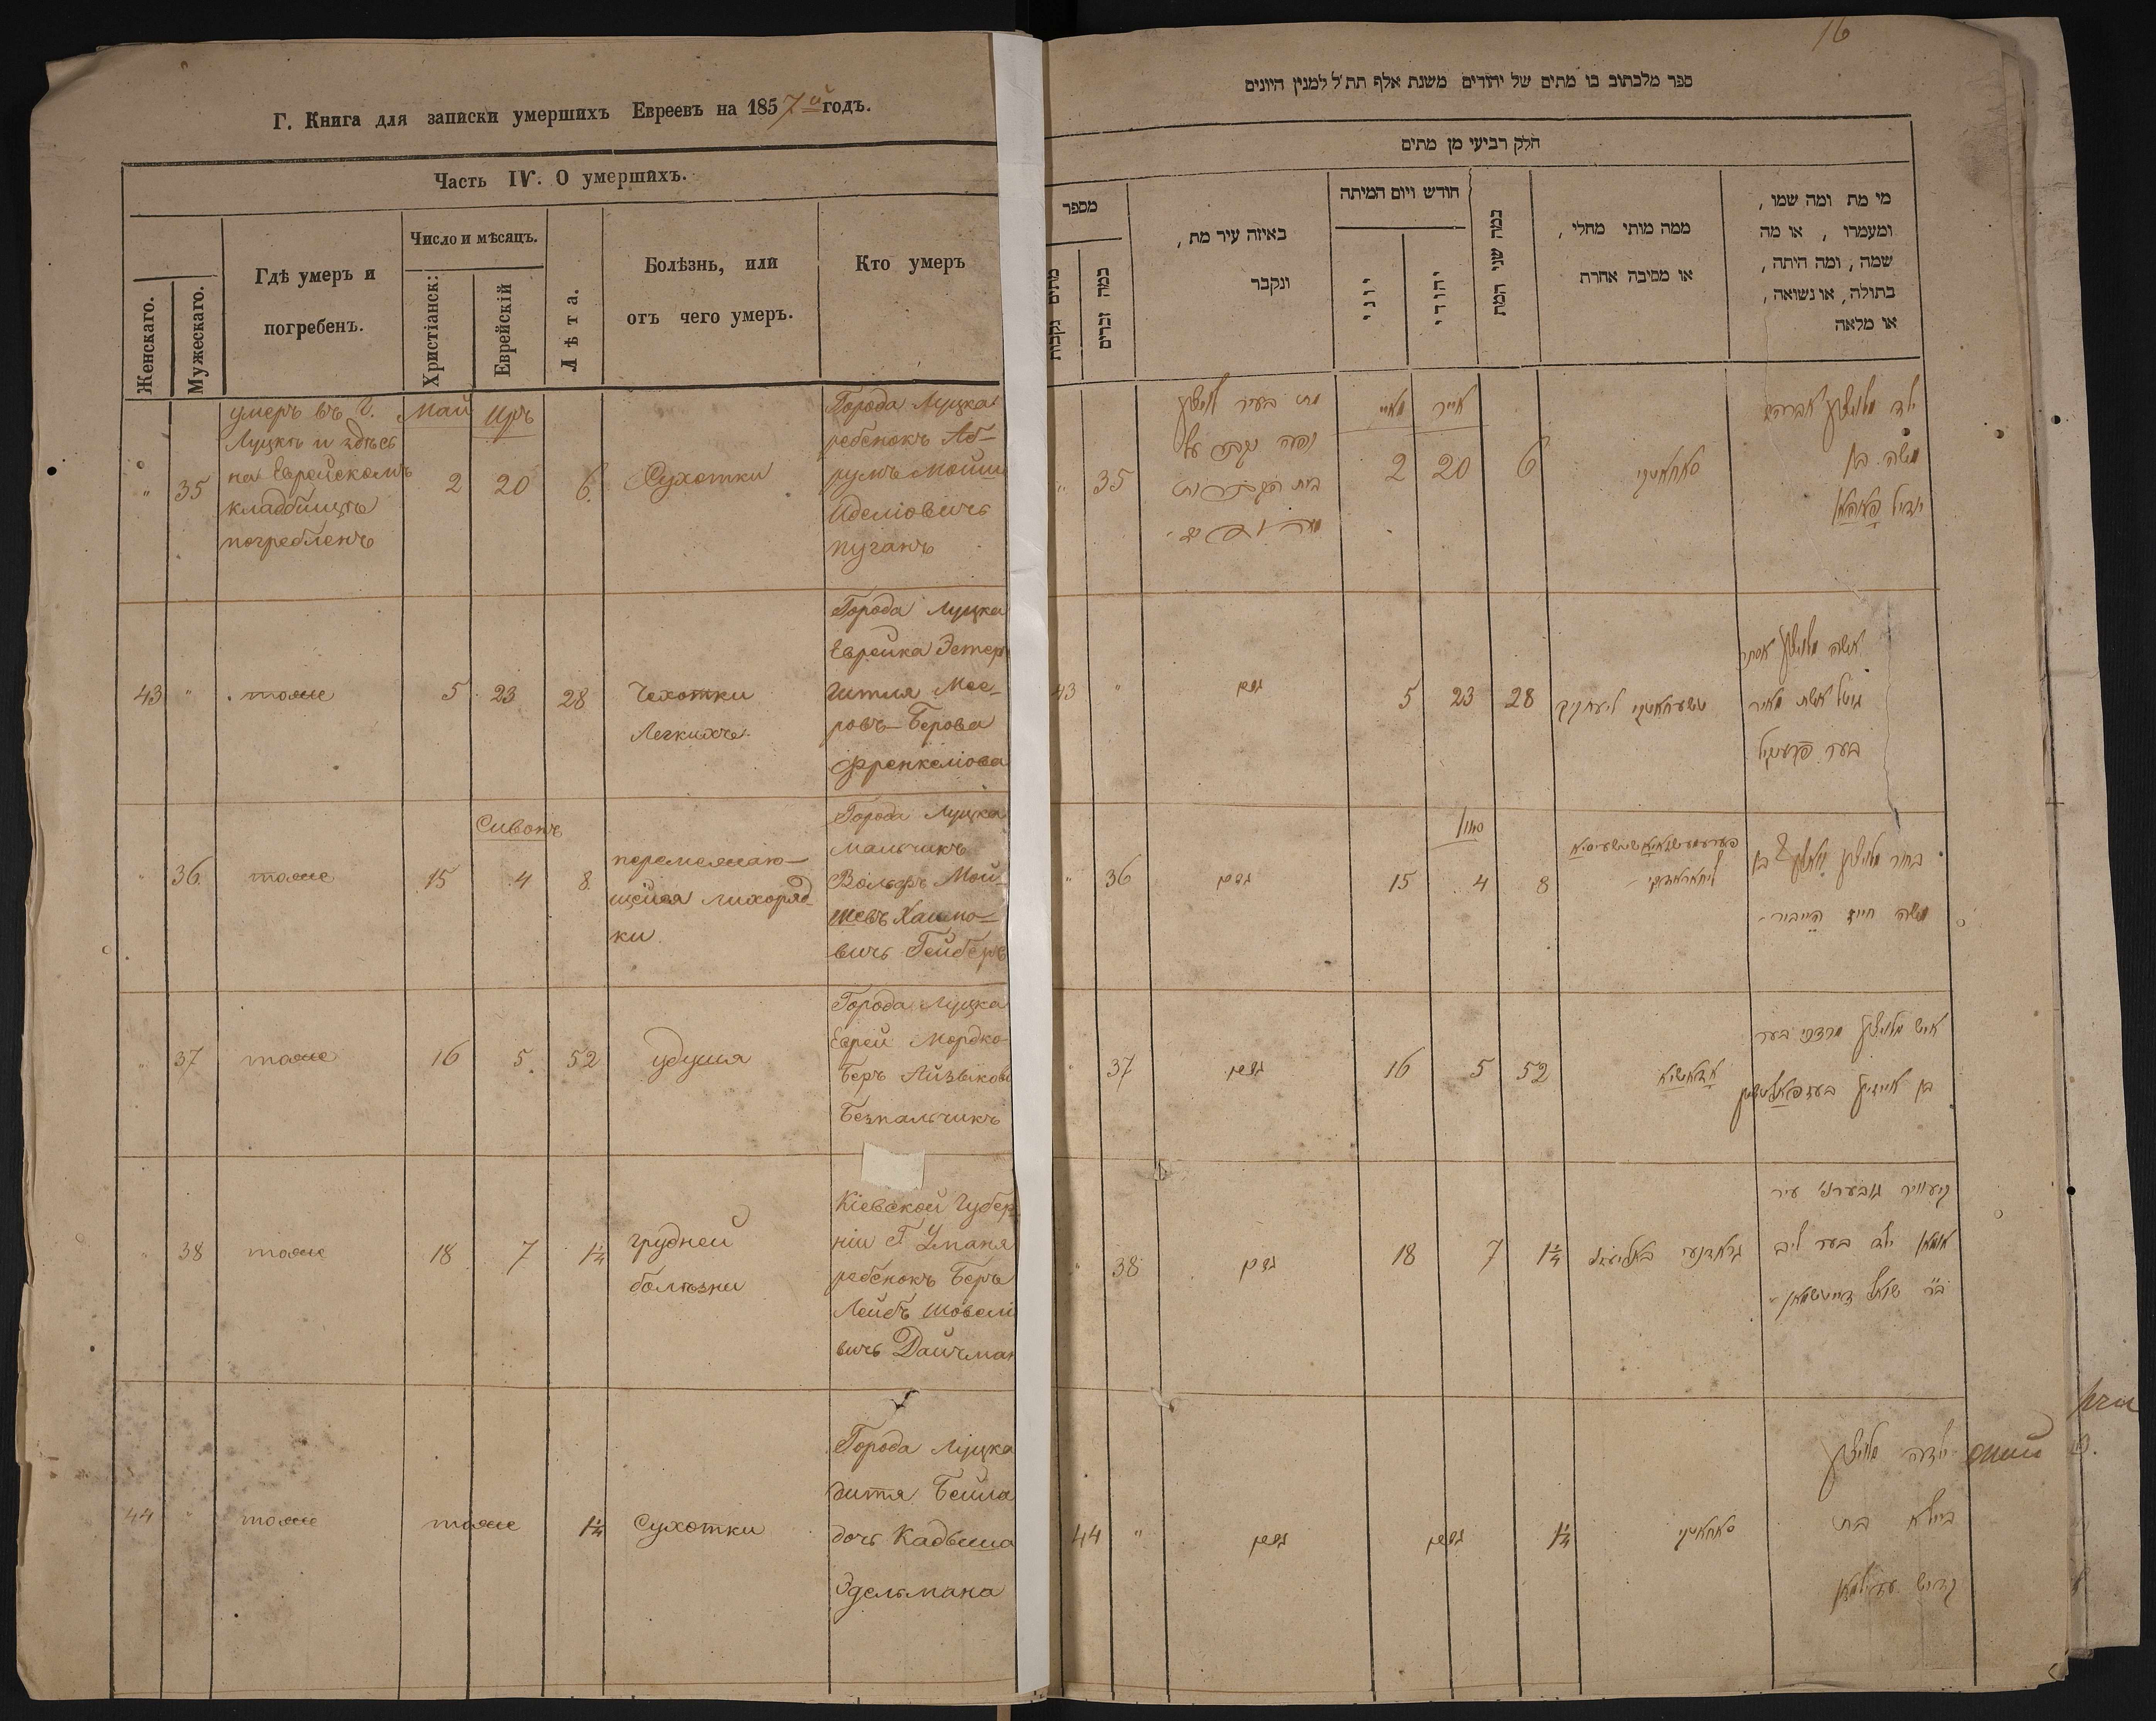 Г. Книга для записки умершихъ Евреевъ на 1857й годъ.
Часть IV. О умершихъ.
Женскаго.
Мужескаго.
Гдѣ умеръ и
погребенъ.
Число и мѣсяцъ.
Христіанск:
Еврейскій
Лѣта.
Болѣзнь, или
отъ чего умеръ.
Кто умеръ
" 35
умеръ въ Г.
Луцкѣ и здѣсь
на Еврейскомъ
кладбищѣ
погребленъ
Май
2
Иръ
20
6.
Сухотки
Города Луцка
ребенокъ Аб-
румъ Мойш
Иделіовичъ
43 "
тоже
5 23 28
Чехотки
Легкихъ.
Города Луцка
Еврейка Эстер
Гитля Мее-
ровъ-Берова
Френкеліова
" 36.
тоже
15
Сивонъ
4
8.
перемежаю-
щейся лихорад
ки
Города Луцка
Мальчикъ
Вольфъ Мой-
шевъ Хаимо-
вичъ Гейберъ
" 37
тоже
16 5. 52
удушья
Города Луцка
Еврей Мордко-
Беръ Айзыкови
Безпальчикъ
" 38
тоже
18 7 1¼
грудней
болѣзни
Кіевской Губер
ніи Г. Уманя
ребенокъ Беръ
Лейбъ Шовелі
вичъ Дайчман
44 "
тоже
тоже
1¼
Сухотки
Города Луцка
дитя Бейла
дочь Кадыша
Эдельмана
16
ספר מלכתוב בו מתים של יהודים משנת אלף תת״ל למנין היונים
חלק רביעי מן מתים
מספר
מתים נקבות
כמה זכרים
באיזה עיר מת,
ונקבר
חודש ויום המיתה
יוני
יהודי
כמה שני המת
ממה מותי מחלי,
או מסיבה אחרת
מי מת ומה שמו,
ומעמרו, או מה
שמה, ומה היתה,
בתולה, או נשואה,
או מלאה
" 35
מת בעיר לויצק
מאיי
2
אייר
20
6
סאחאטקי
ילד מלויצק אברהם
משה בן
43 "
גם שם
5 23 28
אשה מלויצק אסתר
גיטל אשת מאיר
בער פרענקיל
" 36
גם שם
15
סיון
4
8
בחור מלויצק וואלף בן
משה חיים הייבער
37
גם שם
16 5 52
איש מלויצק מרדכי בער
בן אייזיק
" 38
גם שם
18 7 1¼
קיעוויר גובערניי עיר
אומאן ילד בער ליב
44 "
גם שם
גם שם
1¼
סאחאטקי
ילדה מלויצק
ביילא בת
קדיש עדילמאן